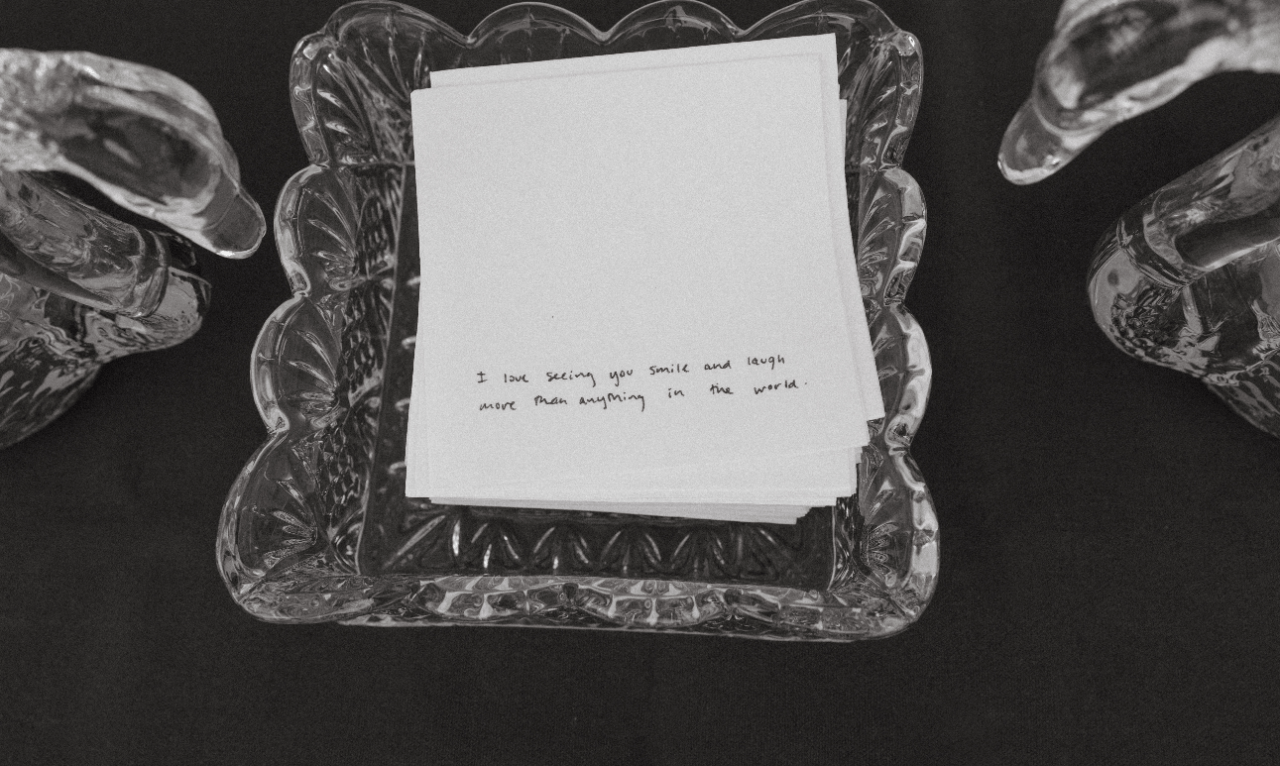 I love seeing you smile and laugh
more than anything in the world.